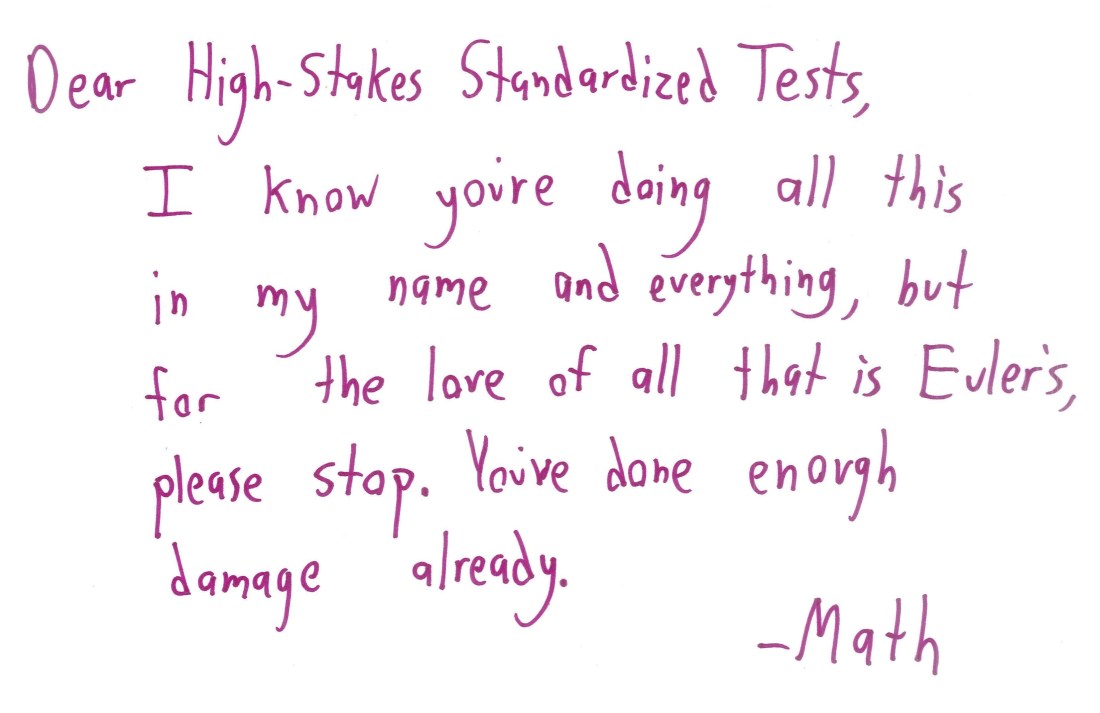 Dear High-Stakes Standardized Tests,
I know you're doing all this
in my name and everything, but
for the love of all that is Euler's,
please stop. You've done enough
damage already.
-Math